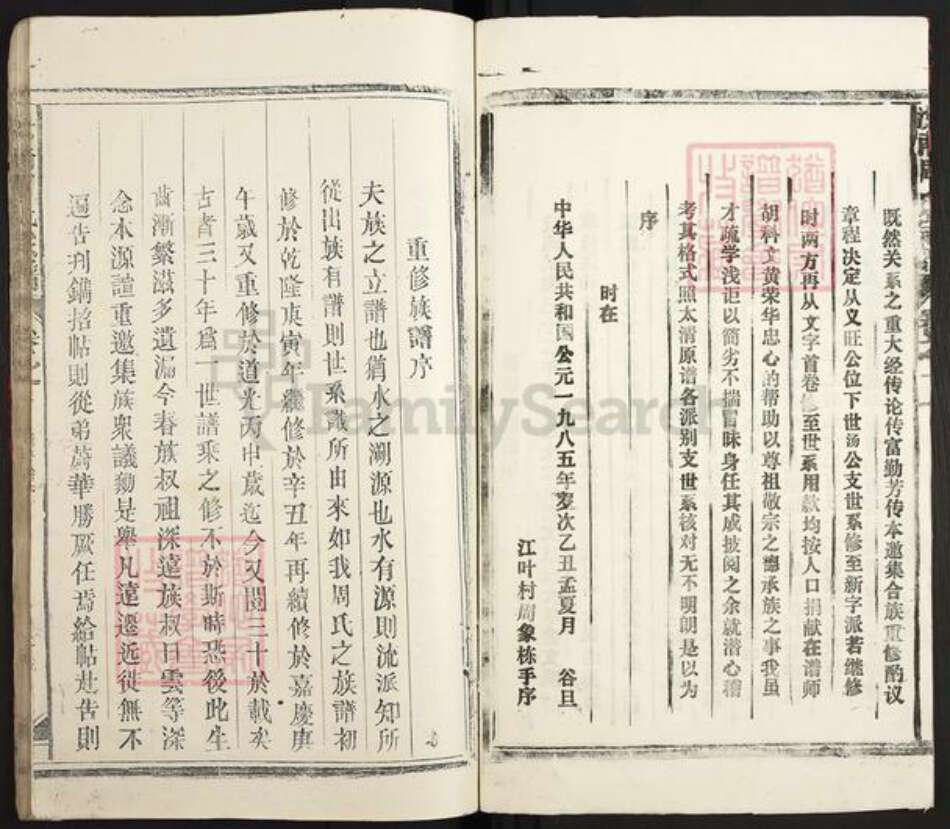 既然关系之重大经传论传富勤芳传本邀集合族重修酌议
章程决定从义旺公位下世汤公支世系修至新字派若继修
时两方再从文字首卷修至世系用款均按人口捐献在谱师
胡科文黄荣华忠心的帮助以尊祖敬宗之德承族之事我虽
才疏学浅讵以简劣不揣冒昧身任其成披阅之余就潜心稽
考其格式照太清原谱各派别支世系核对无不明朗是以为
序
时在
中华人民共和国公元一九八五年岁次乙丑孟夏月 谷旦
江叶村周象栋手序
重修族譜序
夫族之立譜也猶水之溯源也水有源則沈派知所
從出族有譜則世系識所由來如我周氏之族譜初
修於乾隆庚寅年繼修於辛丑年再續修於嘉慶庚
午歲又重修於道光丙申歲迄今又閱三十於載矣
古者三十年爲一世譜乘之修不於斯時恐後此生
齒漸繁滋多遺漏今春族叔祖深遠族叔日雲等深
念本源誼重邀集族衆議勷是舉凡遠遷近徙無不
遍告刋鐫招帖則從弟蒍華勝厥任焉給帖赴告則
FamilySearch